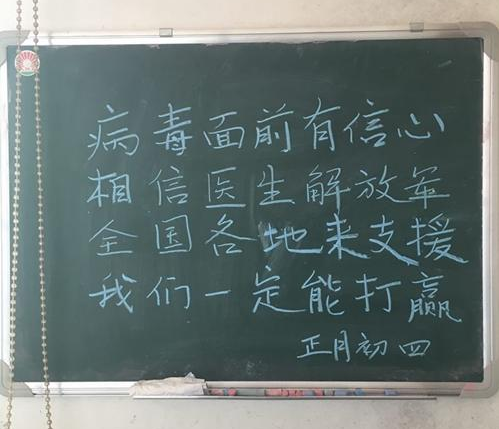 病毒面前有信心
相信医生解放军
全国各地来支援
我们一定能打赢
正月初四